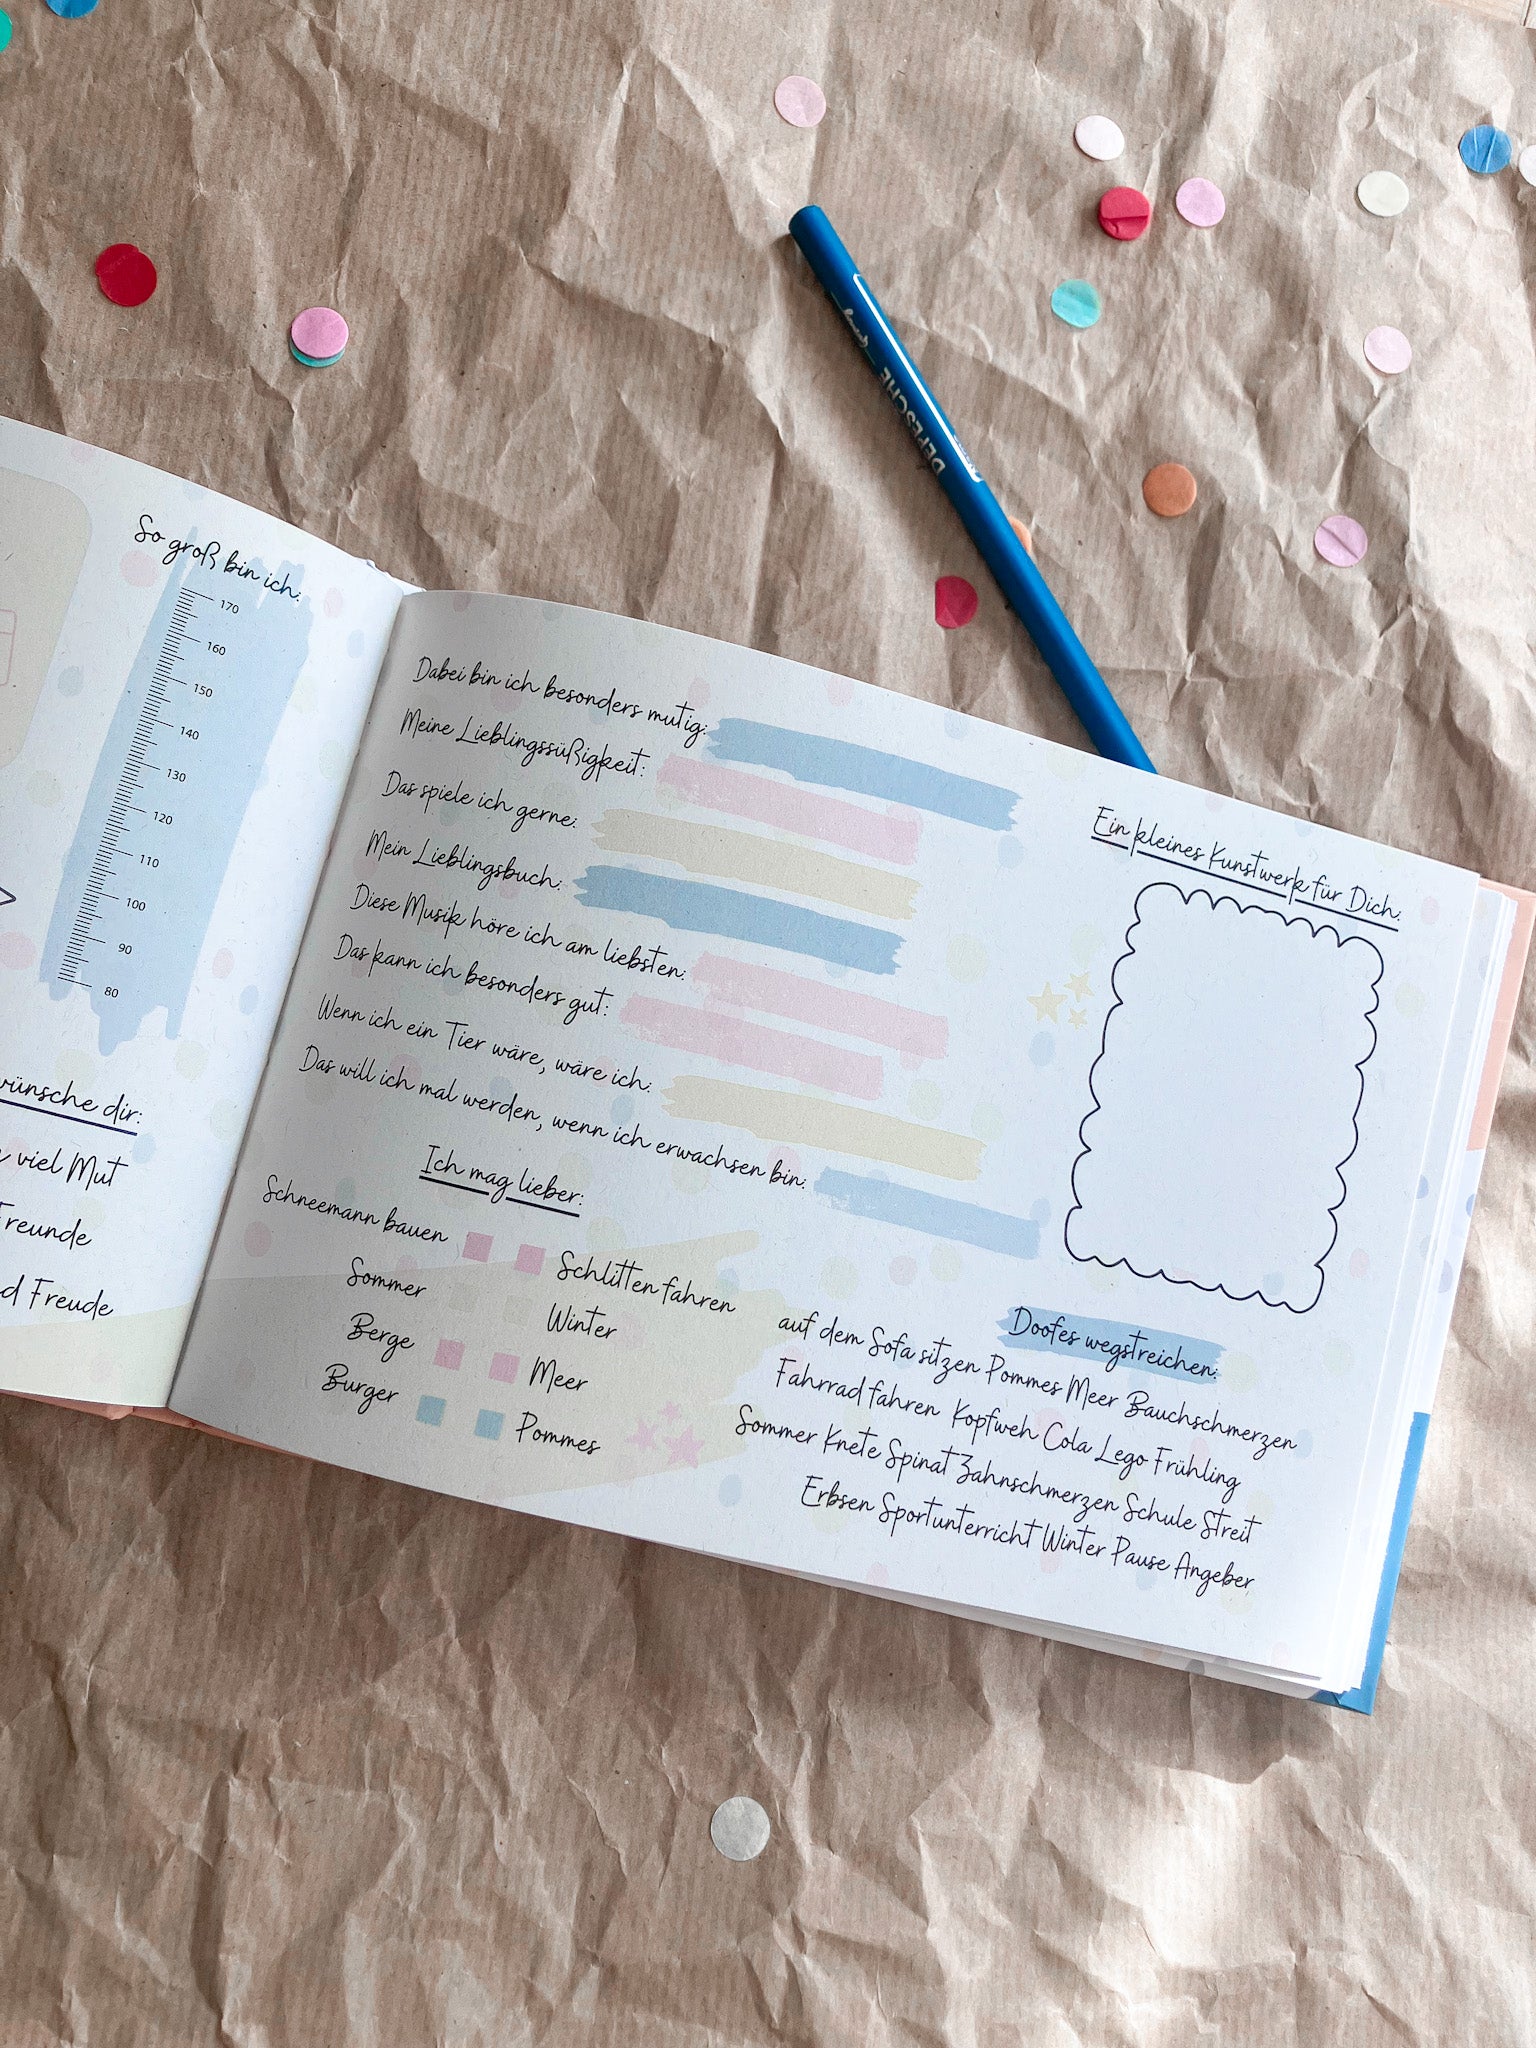 So groß bin ich:
170
160
150
140
130
120
110
100
90
80
wünsche dir:
viel Mut
Freunde
d Freude
Dabei bin ich besonders mutig:
Meine Lieblingssüßigkeit:
Das spiele ich gerne:
Mein Lieblingsbuch:
Diese Musik höre ich am liebsten:
Das kann ich besonders gut:
Wenn ich ein Tier wäre, wäre ich:
Das will ich mal werden, wenn ich erwachsen bin:
Ich mag lieber:
Schneemann bauen Schlitten fahren
Sommer Winter
Berge Meer
Burger Pommes
Ein kleines Kunstwerk für Dich:
Doofes wegstreichen:
auf dem Sofa sitzen Pommes Meer Bauchschmerzen
Fahrrad fahren Kopfweh Cola Lego Frühling
Sommer Knete Spinat Zahnschmerzen Schule Streit
Erbsen Sportunterricht Winter Pause Angeber
DEPESCHE